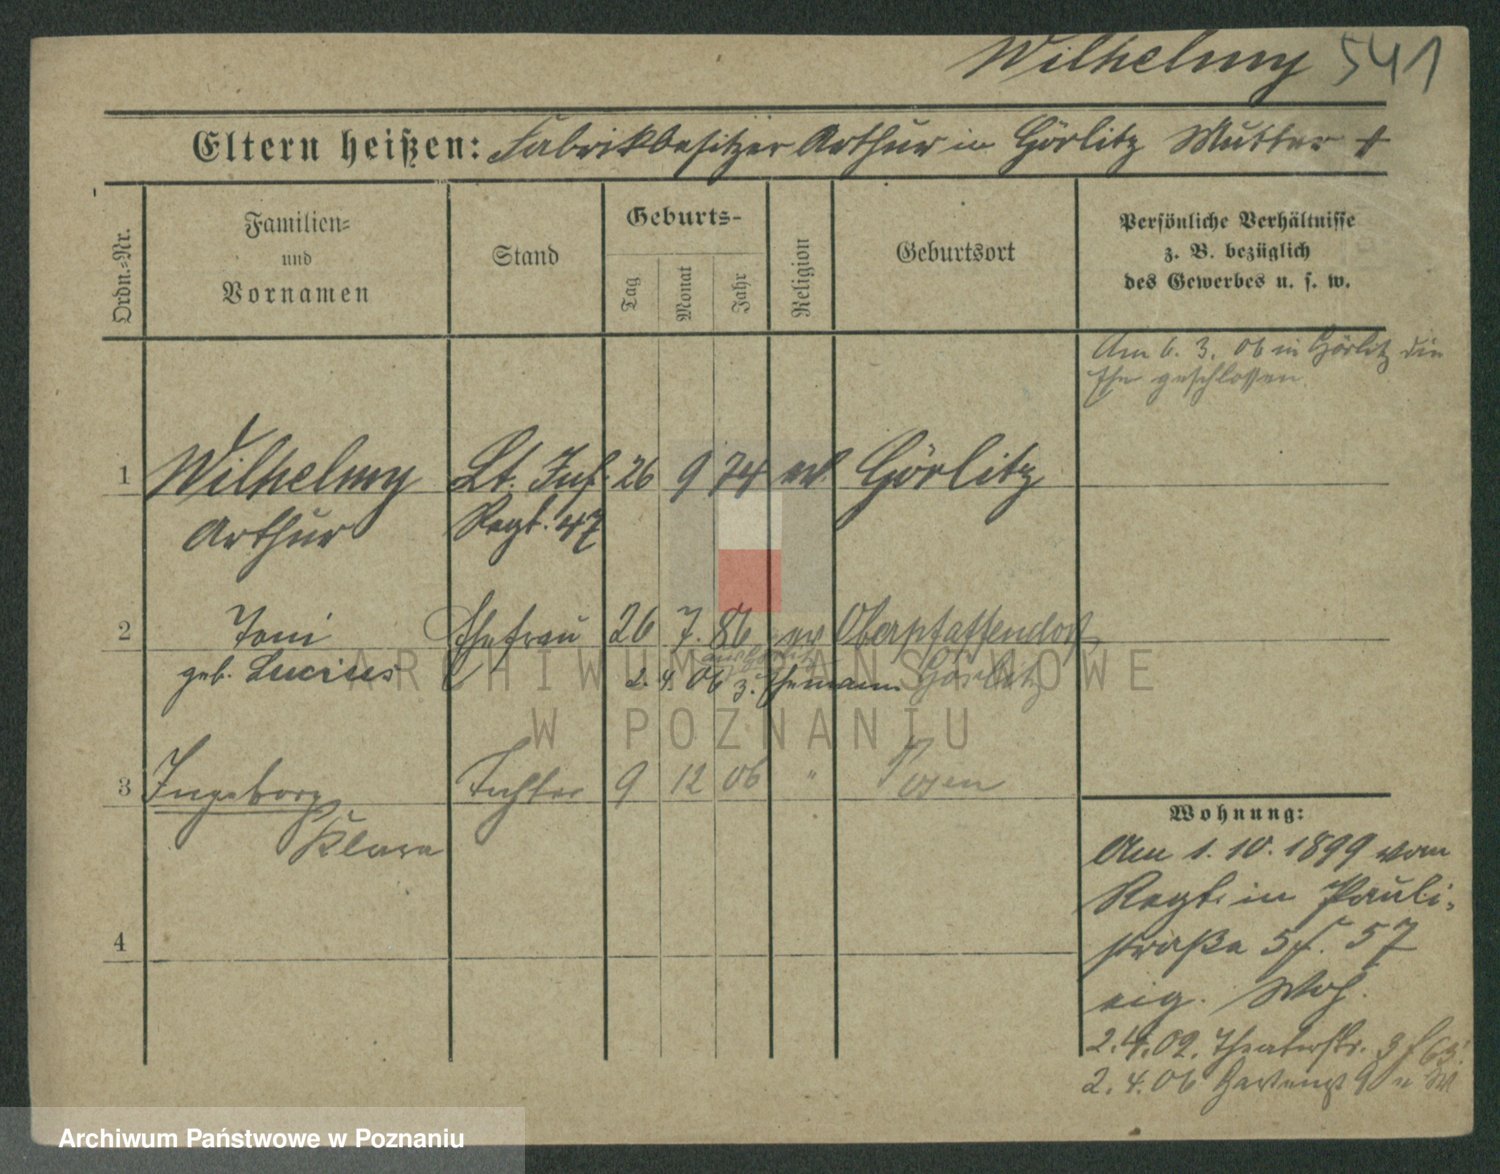 Wilhelmy 541
Eltern heißen: Fabrikbesitzer Arthur in Görlitz Mutter +
Ordn.-Nr.
Familien-
und
Vornamen
Stand
Geburts-
Tag
Monat
Jahr
Religion
Geburtsort
Persönliche Verhältnisse
z. B. bezüglich
des Gewerbes u. s. w.
Am 6. 3. 06 in Görlitz die
Ehe geschlossen.
1 Wilhelmy Lt. Inf. 26 9 74 ev. Görlitz
Arthur Regt. 47
2 Toni Ehefrau 26 7. 86 ev Oberpfaffendorf
geb. Lucius 2. 4. 06 z. Ehemann Görlitz
3 Ingeborg Tochter 9 12 06 " Posen
Klara
4
Wohnung:
Am 1. 10. 1899 vom
Regt. in Pauli-
straße 5 57
eig. Woh.
2. 4. 02. Theaterstr. 3 63.
2. 4. 06 9
ARCHIWUM PAŃSTWOWE
W POZNANIU
Archiwum Państwowe w Poznaniu